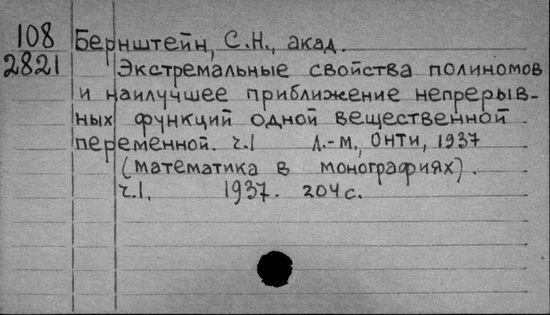 108 Бернштейн, С.Н., акад.
2821 Экстремальные свойства полиномов
и наилучшее приближение непрерыв-
ных функций одной вещественной
переменной. ч.1 Л.-М., ОНТИ, 1937
(математика в монографиях).
ч.1. 1937. 204с.